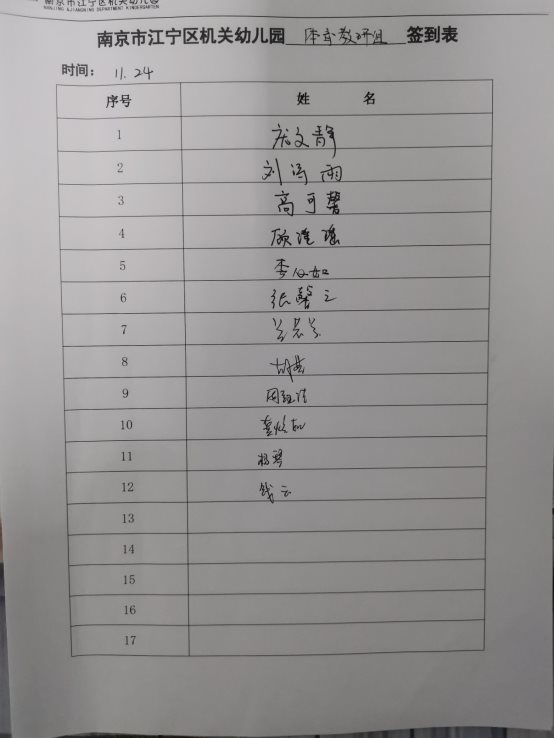 南京市江宁区机关幼儿园
NANJING JIANGNING DEPARTMENT KINDERGARTEN
南京市江宁区机关幼儿园 体育教研组 签到表
时间： 11.24
序号 姓 名
1 庞文静
2 刘冯雨
3 高可馨
4 顾瑾瑶
5 李
6 张馨之
7
8 胡
9 周
10
11 杨琴
12 钱云
13
14
15
16
17